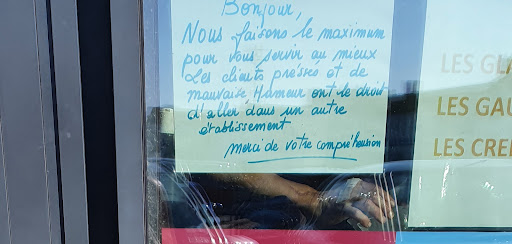 Bonjour,
Nous faisons le maximum
pour vous servir au mieux
Les clients pressés et de
mauvaise Humeur ont le droit
d'aller dans un autre
établissement
merci de votre compréhension
LES GLA
LES GAU
LES CRE